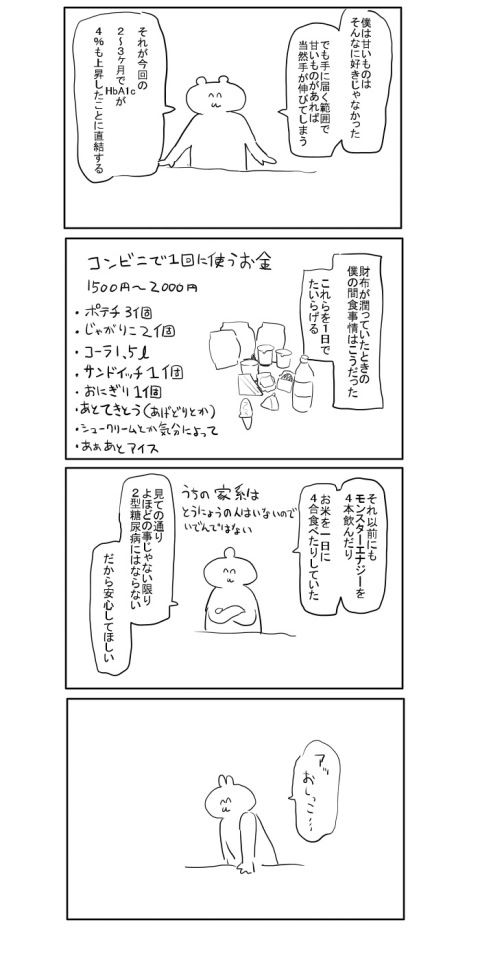 僕は甘いものは
そんなに好きじゃなかった
でも手に届く範囲で
甘いものがあれば
当然手が伸びてしまう
それが今回の
2～3ヶ月で
HbA1cが
4%も上昇したことに直結する
財布が潤っていたときの
僕の間食事情はこうだった
これらを1日で
たいらげる
コンビニで1回に使うお金
1500円～2000円
・ポテチ3個
・じゃがりこ2個
・コーラ1.5ℓ
・サンドイッチ1個
・おにぎり1個
・あとてきとう(あげどりとか)
・シュークリームとか気分によって
・あぁあとアイス
それ以前にも
モンスターエナジーを
4本飲んだり
お米を一日に
4合食べたりしていた
うちの家系は
とうにょうの人はいないので
いでんではない
見ての通り
よほどの事じゃない限り
2型糖尿病にはならない
だから安心してほしい
アッ
おしっこ…